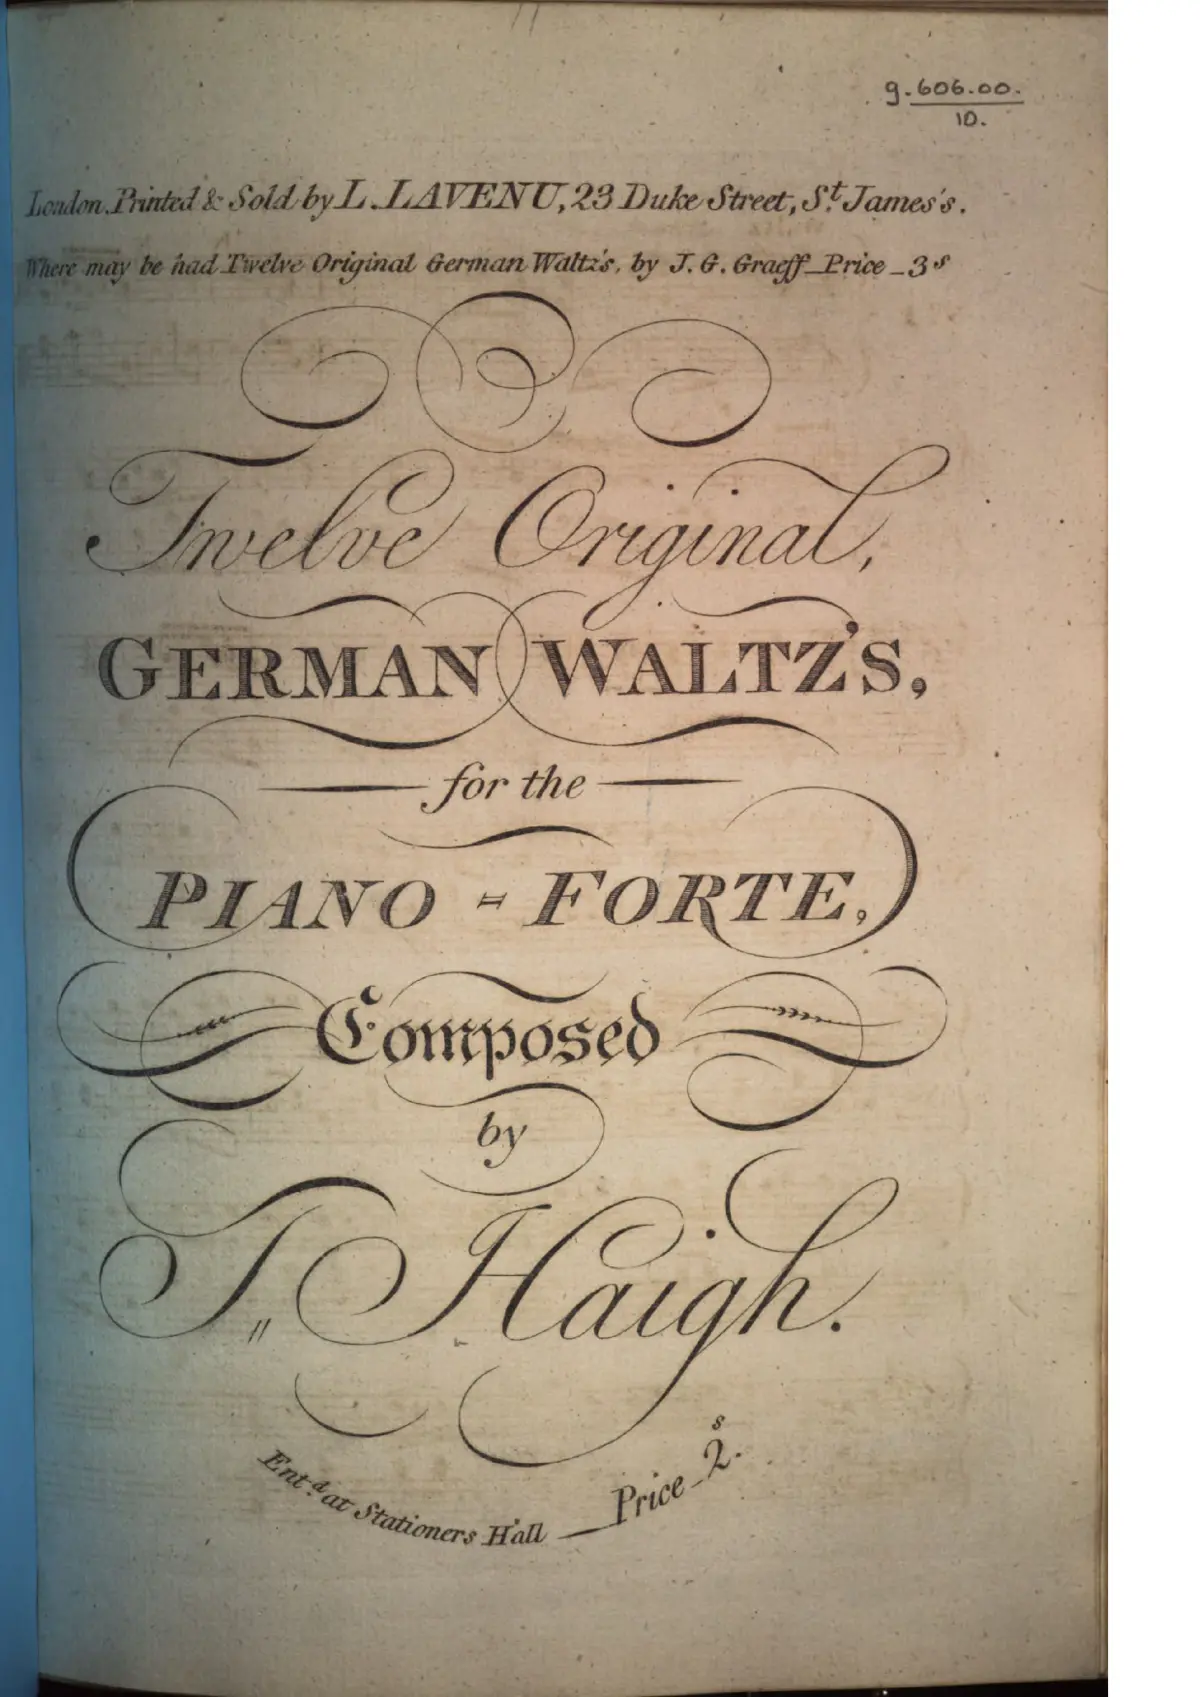 g.606.00.
10.
London. Printed & Sold by L. LAVENU, 23 Duke Street, St. James's.
Where may be had Twelve Original German Waltz's, by J. G. Graeff_Price_3s
Twelve Original,
GERMAN WALTZ'S,
for the
PIANO=FORTE,
Composed
by
T" Haigh.
Entd. at Stationers Hall — Price_2s.